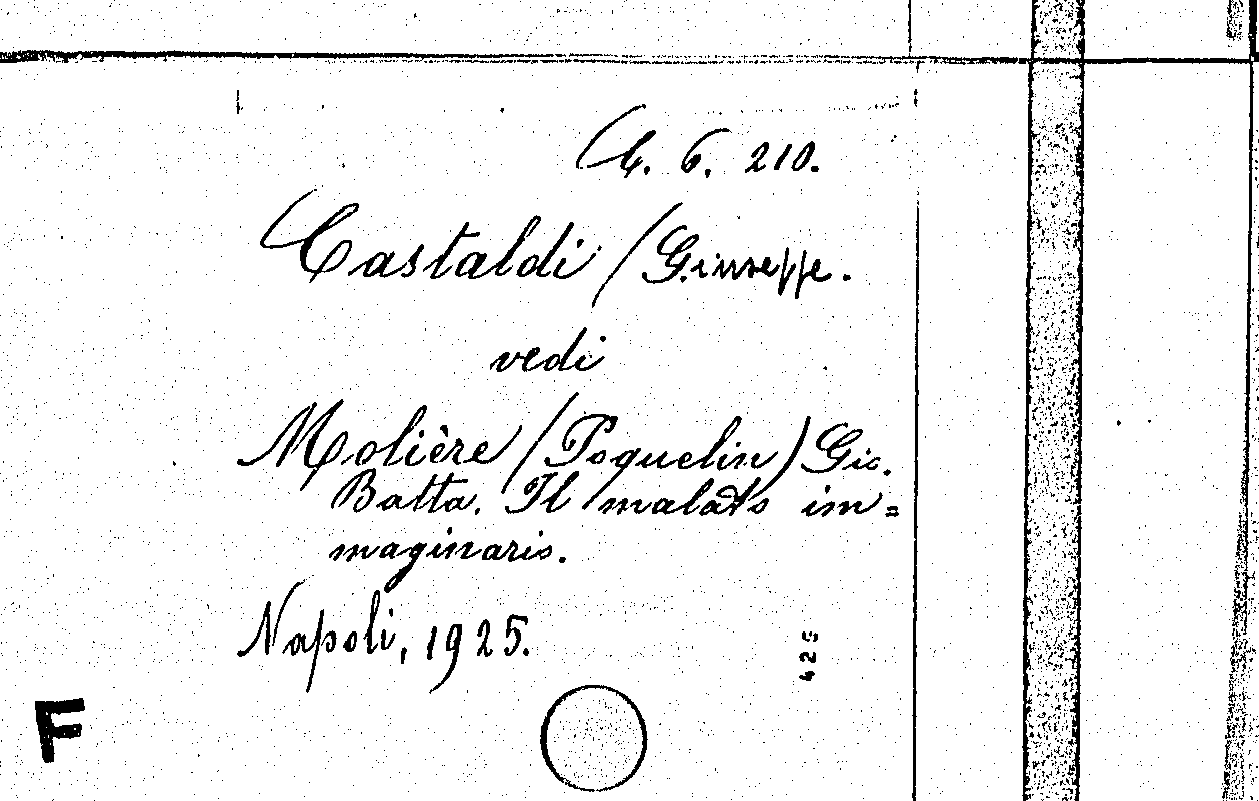 6. 210.
Castaldi (Giuseppe.
vedi
Molière (Poquelin) Gio.
Batta. Il malato im=
maginario.
Napoli, 1925.
425
F